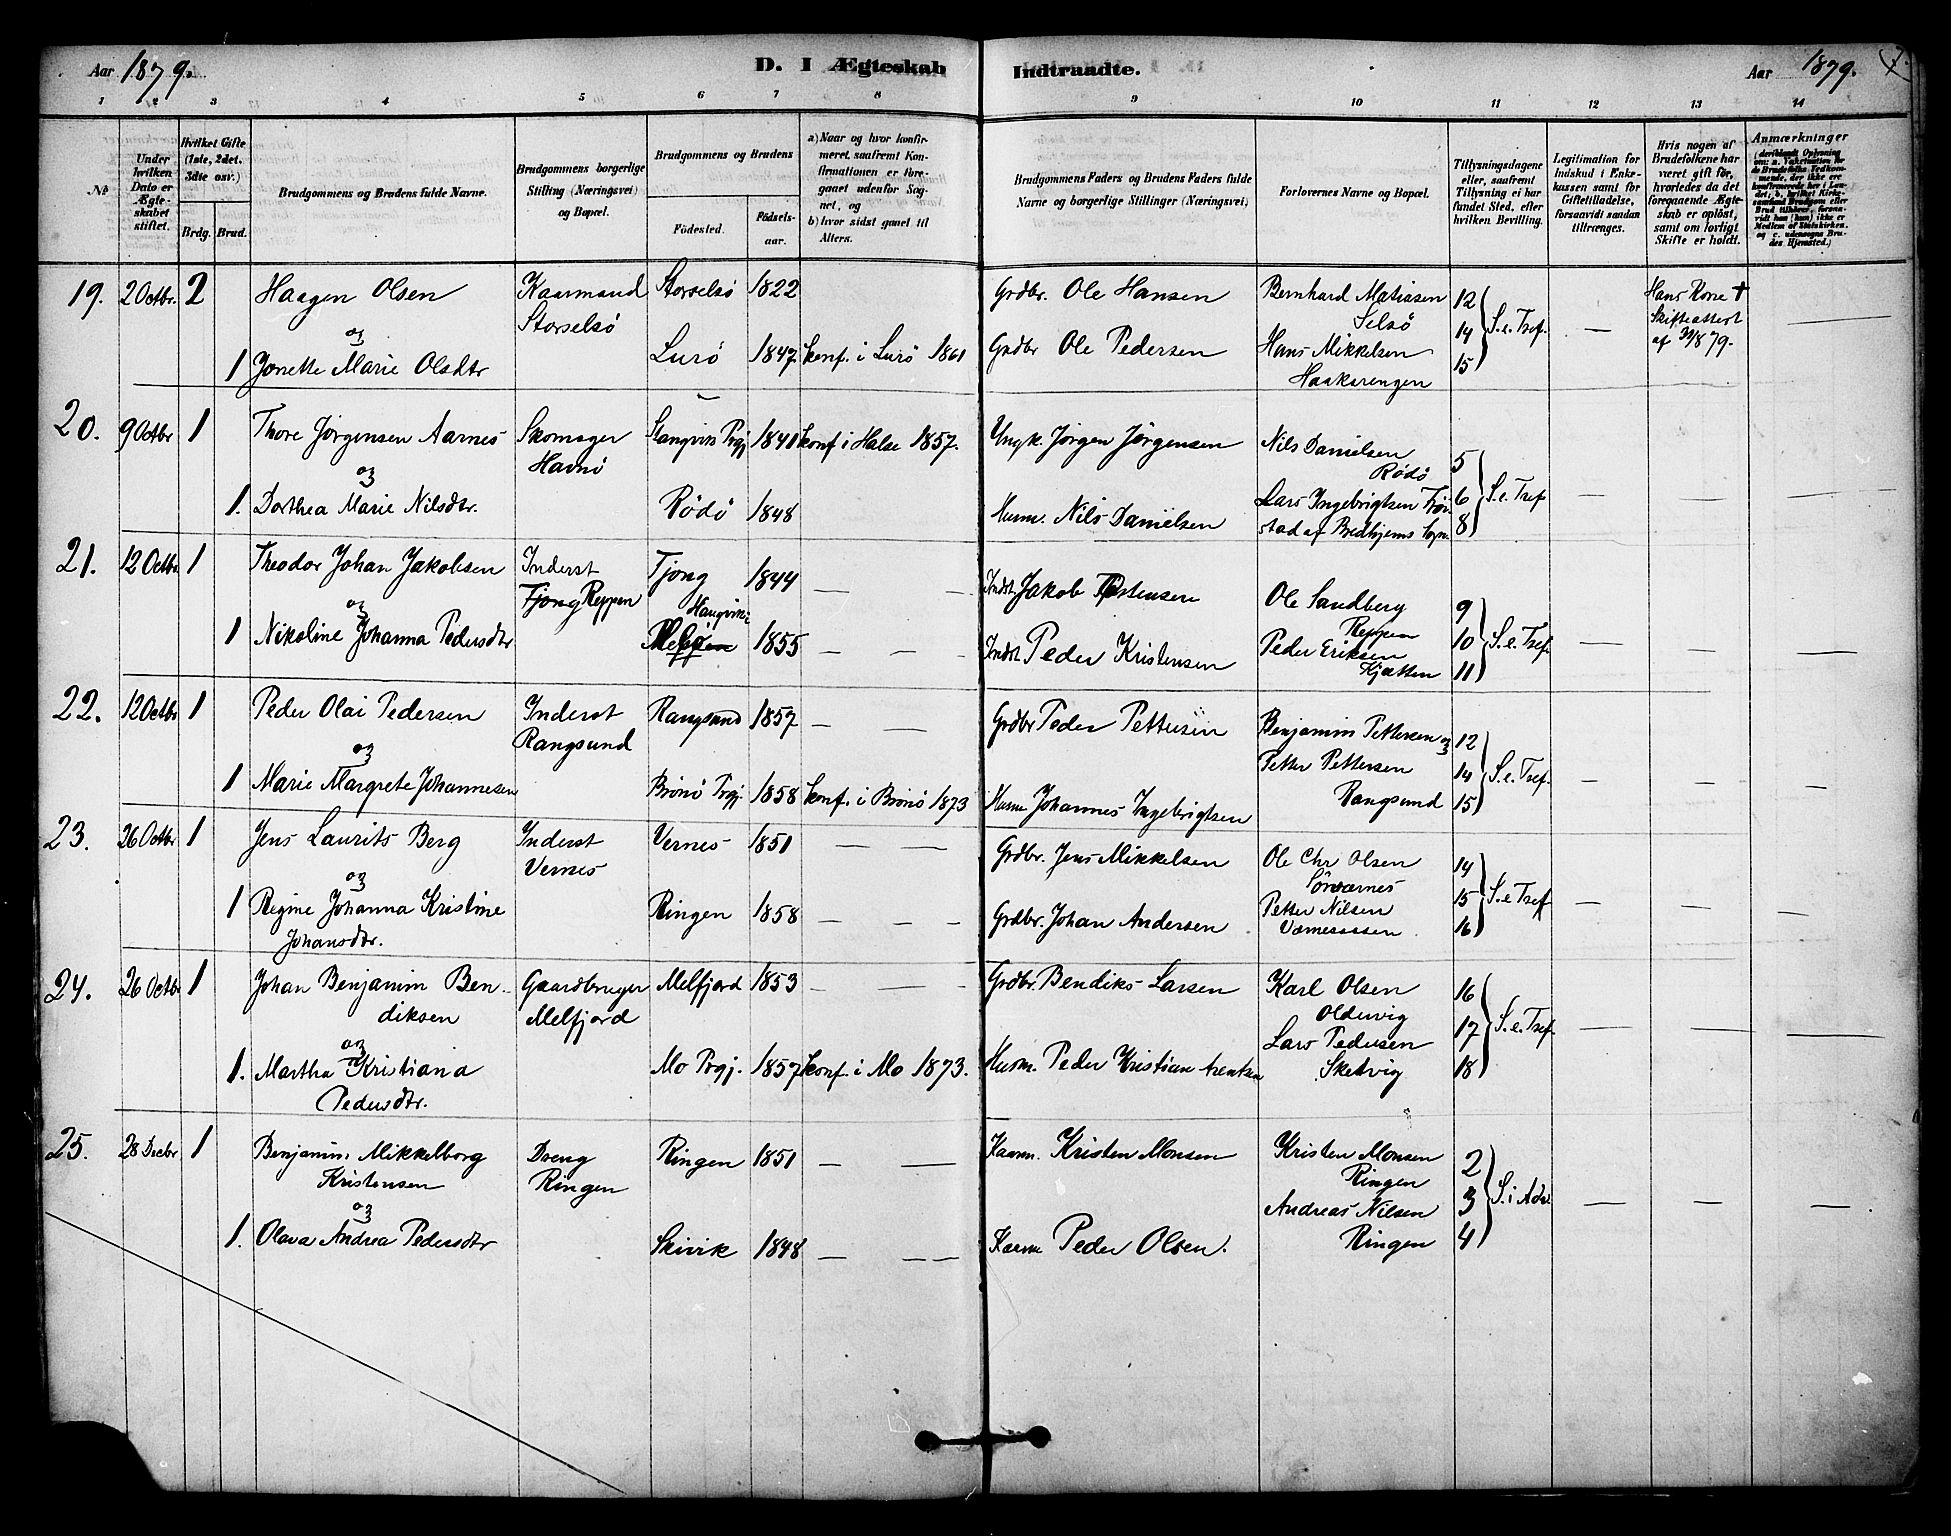 Aar 1879.
D. I Ægteskab Indtraadte.
Aar 1879.
7.
1 2 3 4 5 6 7 8 9 10 11 12 13 14
No
Under hvilken Dato er Ægteskabet stiftet.
Hvilket Gifte (1ste, 2det, 3dte osv.)
Brdg. Brud.
Brudgommens og Brudens fulde Navne.
Brudgommens borgerlige Stilling (Næringsvei) og Bopæl.
Brudgommens og Brudens
Fødested. Fødselsaar.
a) Naar og hvor konfirmeret, saafremt Konfirmationen er foregaaet udenfor Sognet, og
b) hvor sidst gaaet til Alters.
Brudgommens Faders og Brudens Faders fulde Navne og borgerlige Stillinger (Næringsvei)
Forlovernes Navne og Bopæl.
Tillysningsdagene eller, saafremt Tillysning ei har fundet Sted, efter hvilken Bevilling.
Legitimation for Indskud i Enkekassen samt for Giftetilladelse, forsaavidt saadan tiltrænges.
Hvis nogen af Brudefolkene har været gift før, hvorledes da det foregaaende Ægteskab er opløst, samt om lovligt Skifte er holdt.
Anmærkninger
(deriblandt Oplysning om: a. Vaksination for de Brudefolks Vedkommende, der ikke ere konfirmerede her i Landet, b. hvilket Kirkesamfund Brudgom eller Brud tilhører, forsaavidt han (hun) ikke er Medlem af Statskirken, og c. udensogns Brudes Hjemsted.)
19. 2 Octbr. 2 Haagen Olsen Kaarmand Storselsö Storselsö 1822 Grdbr. Ole Hansen Bernhard Matiasen Selsö 12 14 15 S. e. Tref. — Hans Kone † Skifteattest af 30/8 79. —
og
1 Jonette Marie Olsdtr Lurö 1847. konf. i Lurö 1861 Grdbr Ole Pedersen Hans Mikkelsen
20. 9 Octbr 1 Thore Jörgensen Aarnes Skomager Havnö Stangvik Prgj 1841 konf i Halse 1857. Ungk. Jörgen Jörgensen Nils Danielsen Rödö 5 6 8 S. e. Tref — — —
og
1. Dorthea Marie Nilsdtr. Rödö 1848 Husm. Nils Danielsen Lars Ingebrigtsen
21. 12 Octbr 1 Theodor Johan Jakobsen Inderst Tjong Reppen Tjong 1844 — — Indst. Jakob Ole Sandberg Reppen 9 10 11 S. e. Tref. — — —
og
1 Nikoline Johanna Pedersdtr 1855 — — — Indst. Peder Kristensen Peder Eriksen Kjætten
22. 12 Octbr 1 Peder Olai Pedersen Inderst Rangsund Rangsund 1857 — — Grdbr Peder Pettersen Benjamin Pettersen og 12 14 15 S. e. Tref. — — —
og
1 Marie Margrete Johannesen Brönö Prgj. 1858 konf. i Brönö 1873 Husm Johannes Ingebrigtsen Petter Pettersen Rangsund
23. 26 Octbr 1 Jens Laurits Berg Inderst Vernes Vernes 1851 — — Grdbr. Jens Mikkelsen Ole Chr Olsen 14 15 16 S. e Tref — — —
og
1 Regine Johanna Kristine Johansdtr. Ringen 1858 — — — Grdbr. Johan Andersen Petter Nilsen
24. 26 Octbr 1 Johan Benjamin Bendiksen Gaardbruger Melfjord Melfjord 1853 — — — Grdbr. Bendiks Larsen Karl Olsen Oldervig 16 17 18 S. e. Tref. — — —
og
1. Martha Kristiana Pedersdtr. Mo Prgj. 1857 konf. i Mo 1873. Husm. Peder Kristian Arentsen Lars Pedersen
25. 28 Decbr 1 Benjamin Mikkelborg Kristensen Dreng Ringen Ringen 1851 — — Kaarm. Kristen Monsen Kristen Monsen Ringen 2 3 4 S. i Adv. — — —
og
1. Olava Andrea Pedersdtr Skivik 1848 — — — Kaarm Peder Olsen. Andreas Nilsen Ringen